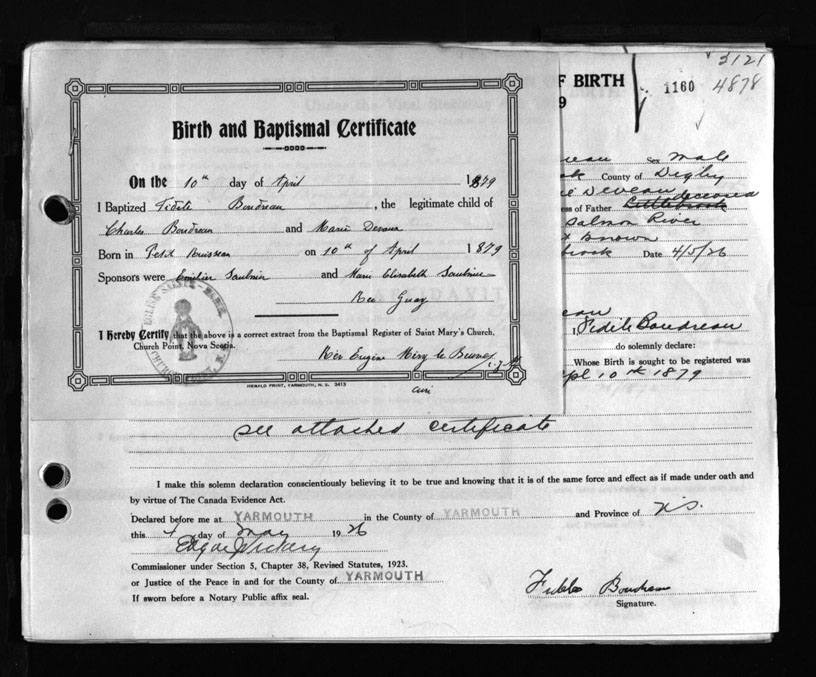 3121
4878
1160
F BIRTH
9
Birth and Baptismal Certificate
On the 10th day of April 1879
I Baptized Fidèle Boudreau, the legitimate child of
Charles Boudreau and Marie
Born in Petit Ruisseau on 10th of April 1879
Sponsors were Emilien Saulnier and Marie Elisabeth Saulnier
Rev Guay
I Hereby Certify that the above is a correct extract from the Baptismal Register of Saint Mary's Church,
Church Point, Nova Scotia.
Rev Eugene
HERALD PRINT, YARMOUTH, N. S. 3413
Sex male
County of Digby
Deveau deceased
ess of Father Littlebrook
Salmon River
t Known
brook Date 4/5/26
eau
I Fidele Boudreau
do solemnly declare:
Whose Birth is sought to be registered was
pl 10th 1879
see attached certificate
I make this solemn declaration conscientiously believing it to be true and knowing that it is of the same force and effect as if made under oath and
by virtue of The Canada Evidence Act.
Declared before me at YARMOUTH in the County of YARMOUTH and Province of N.S.
this 4 day of May 1926
Commissioner under Section 5, Chapter 38, Revised Statutes, 1923.
or Justice of the Peace in and for the County of YARMOUTH
If sworn before a Notary Public affix seal.
Boudreau
Signature.